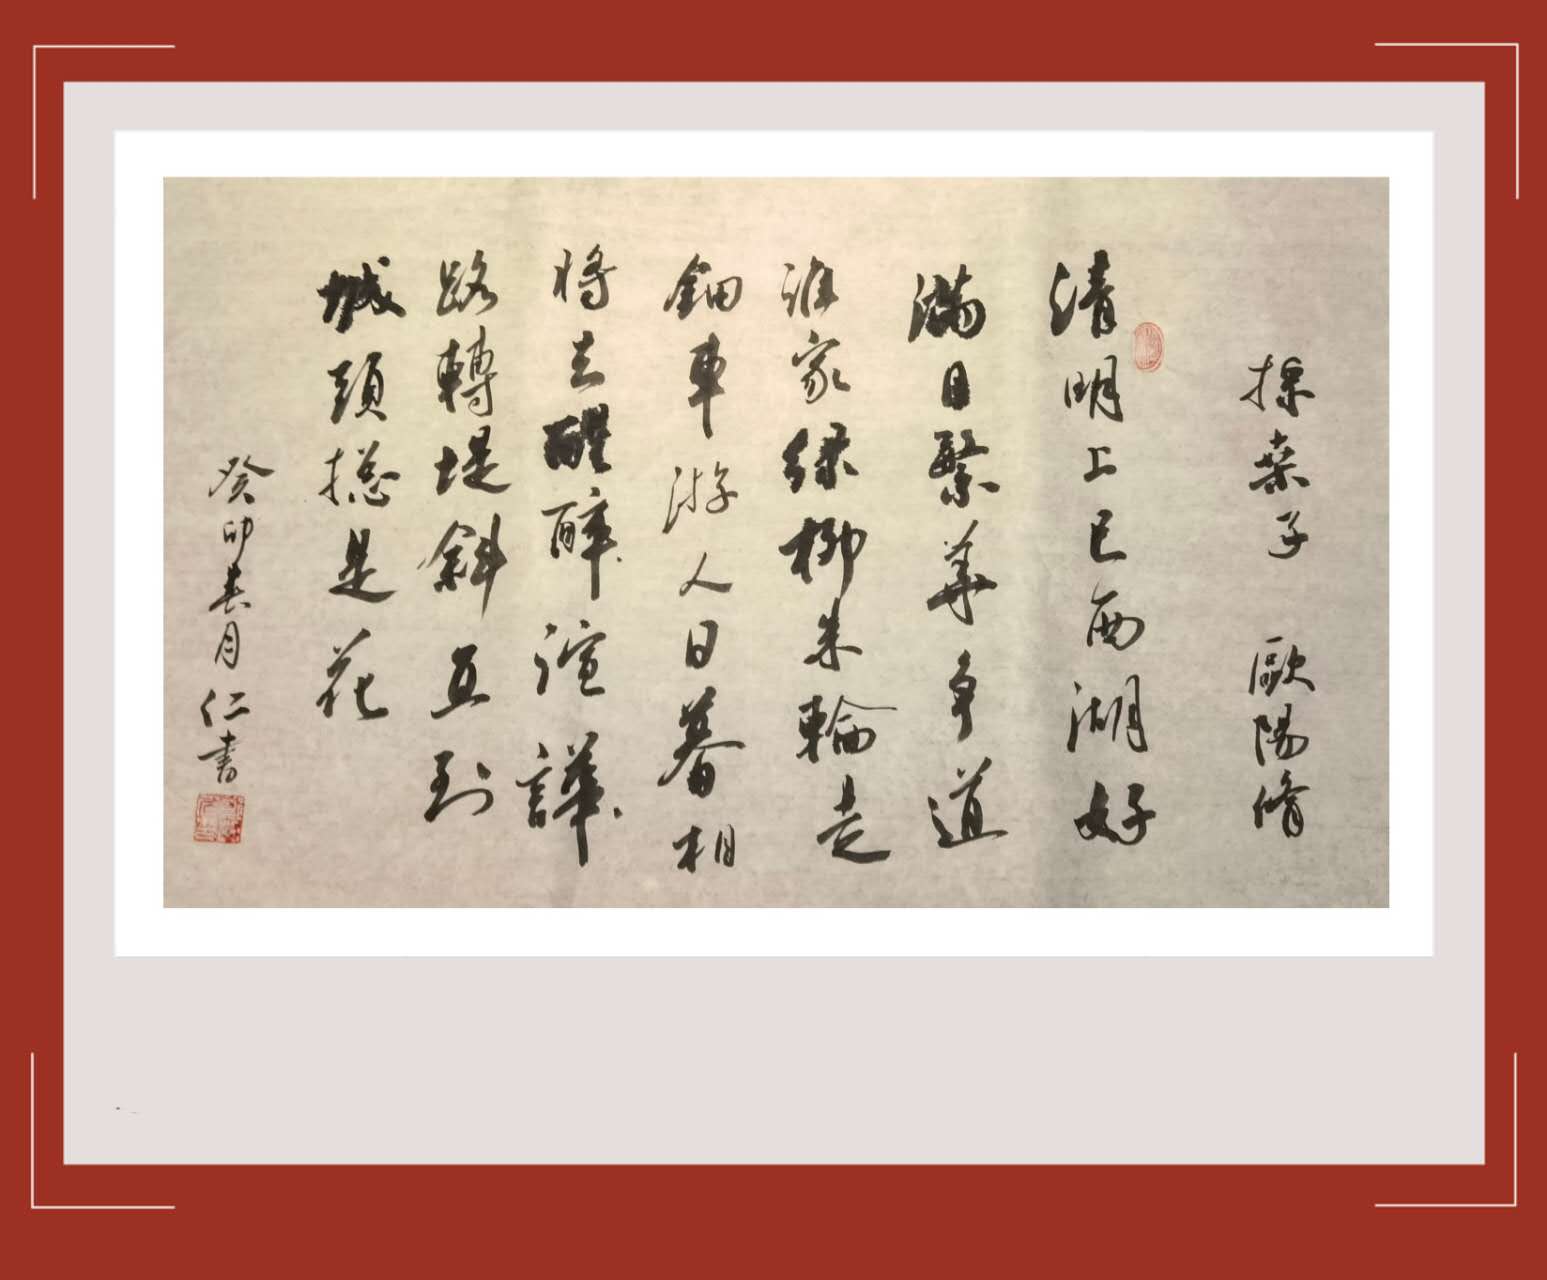 採桑子 歐陽脩
清明上巳西湖好
滿目繁華争道
誰家緑柳朱輪走
鈿車游人日暮相
將去醒醉諠譁
路轉堤斜直到
城頭捴是花
癸卯春月仁書